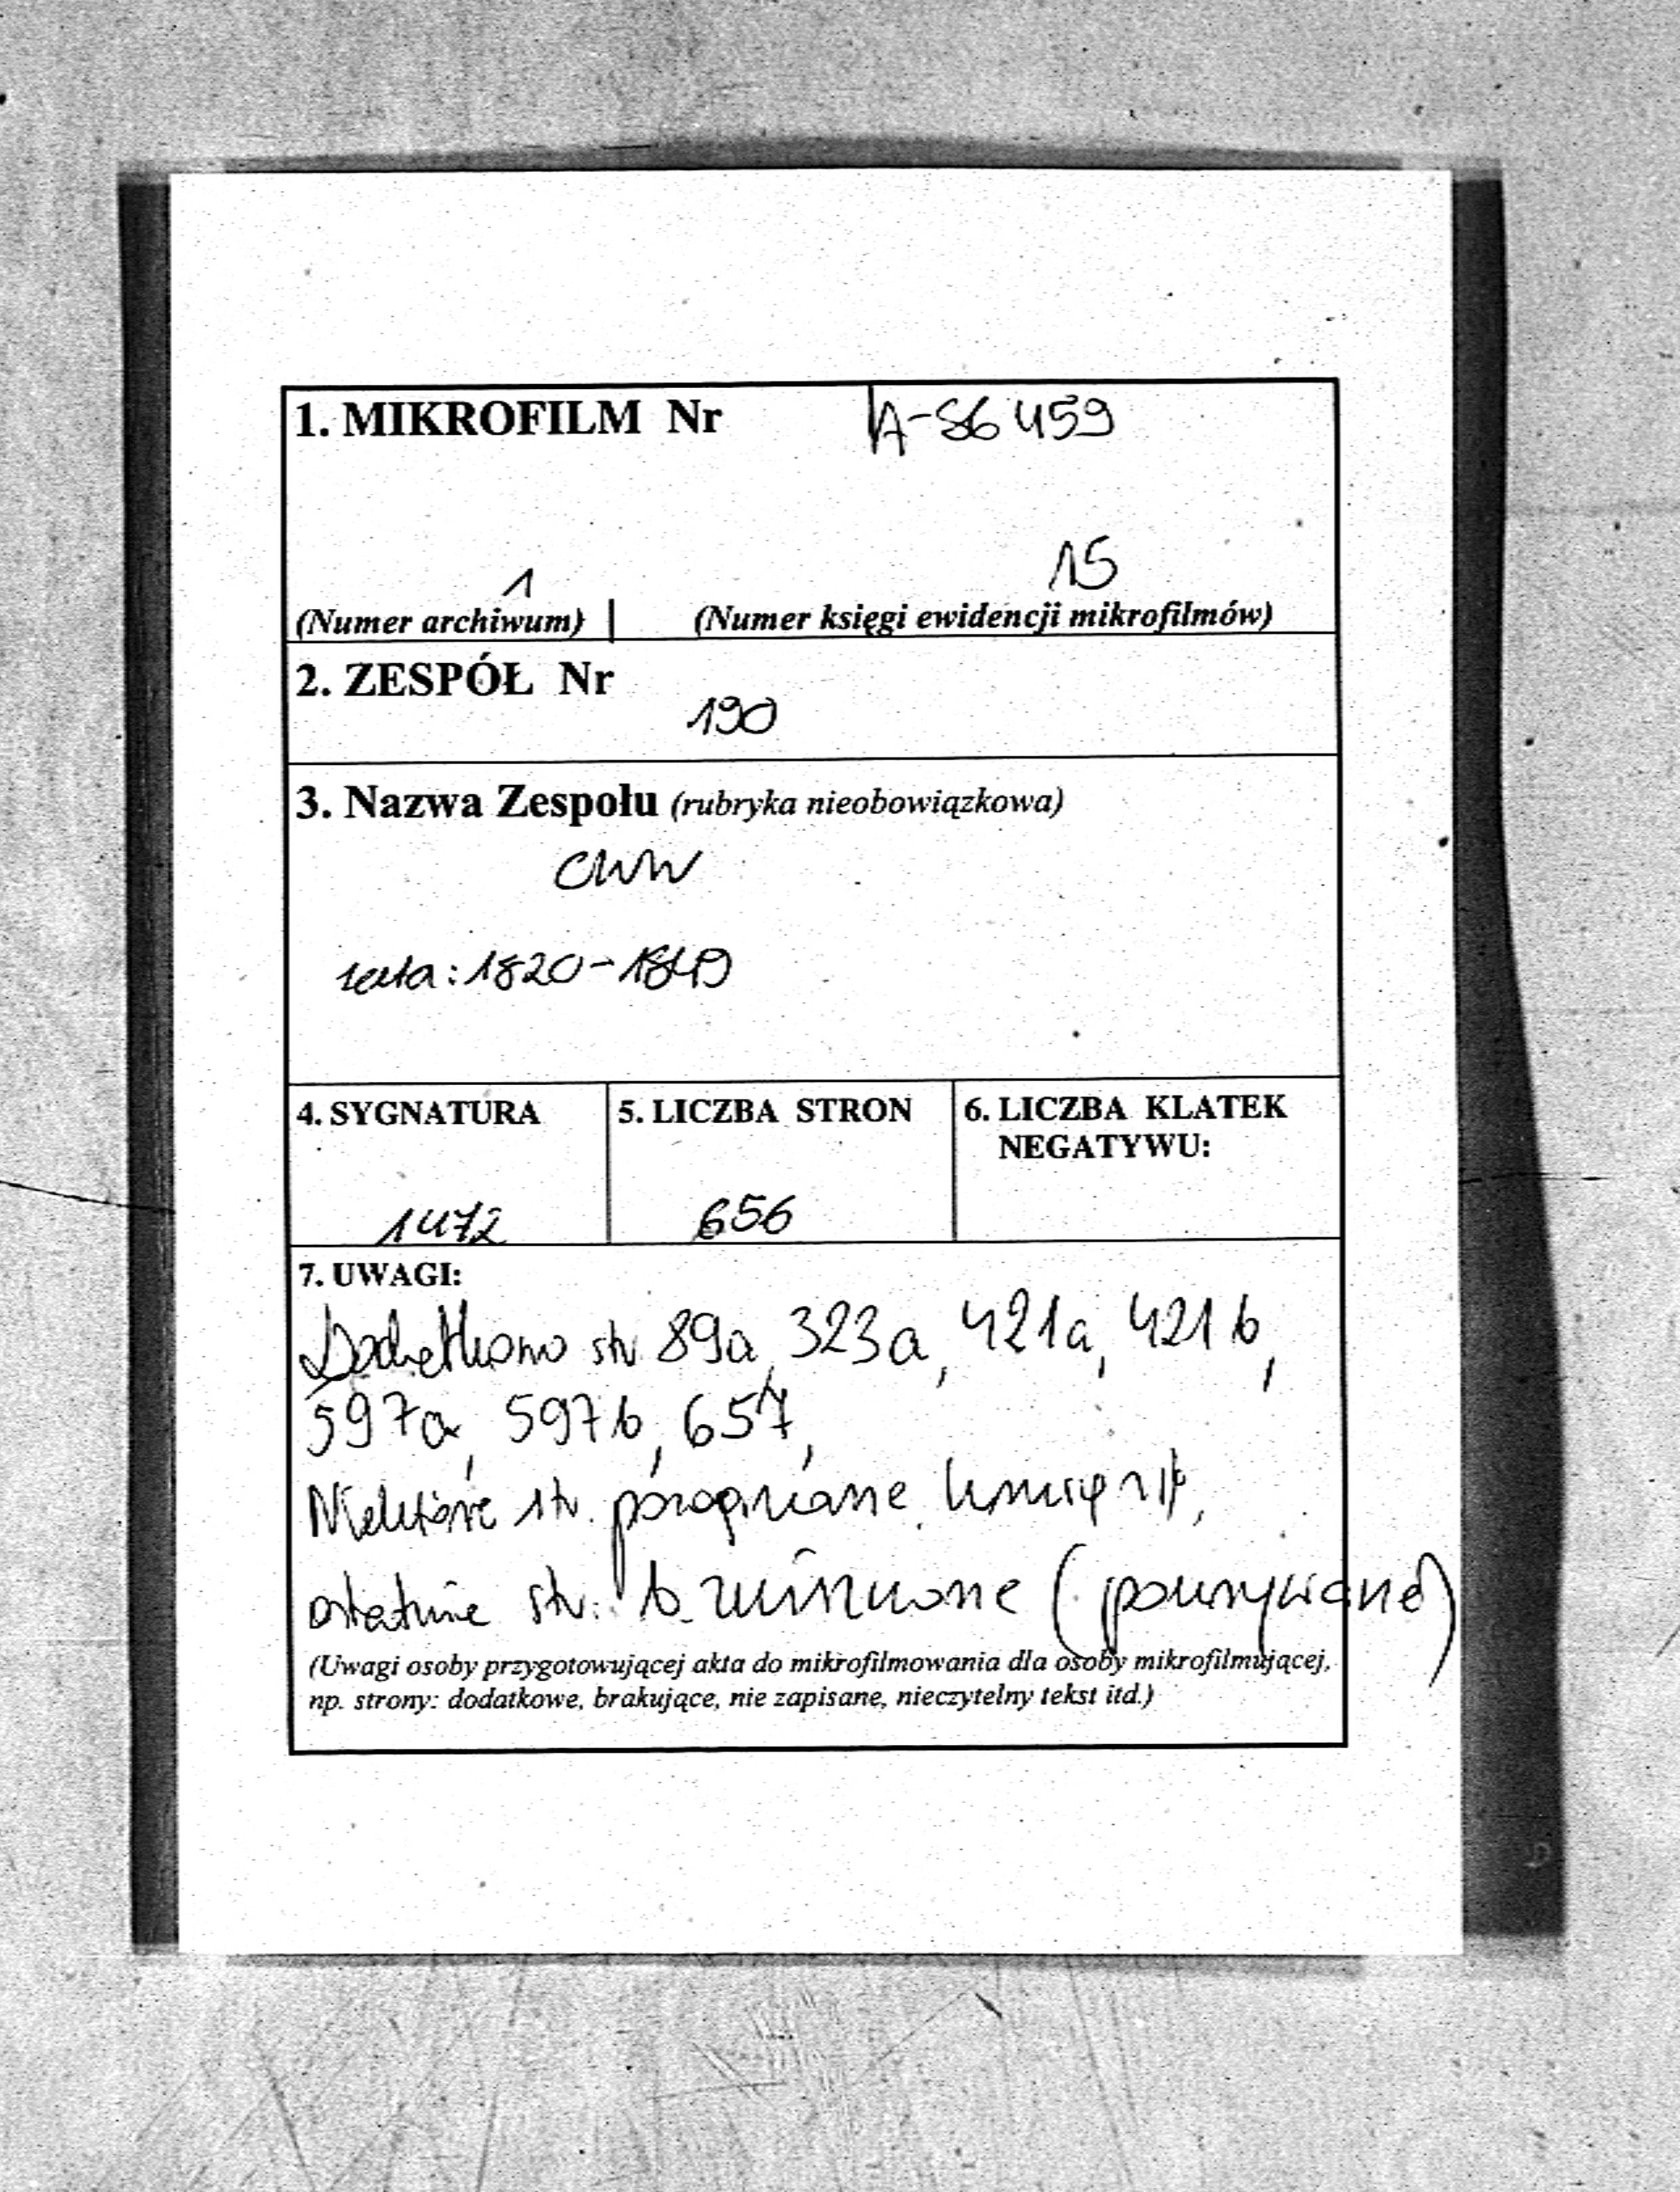 1. MIKROFILM Nr A-86459
1 15
(Numer archiwum) | (Numer księgi ewidencji mikrofilmów)
2. ZESPÓŁ Nr
190
3. Nazwa Zespołu (rubryka nieobowiązkowa)
CWW
data: 1820-1849
4. SYGNATURA 5. LICZBA STRON 6. LICZBA KLATEK
NEGATYWU:
1472 656
7. UWAGI:
Dodatkowo str 89a, 323a, 421a, 421b,
597a, 597b, 657,
Niektóre str.
ostatnie str. b. zniszczone
(Uwagi osoby przygotowującej akta do mikrofilmowania dla osoby mikrofilmującej,
np. strony: dodatkowe, brakujące, nie zapisane, nieczytelny tekst itd.)